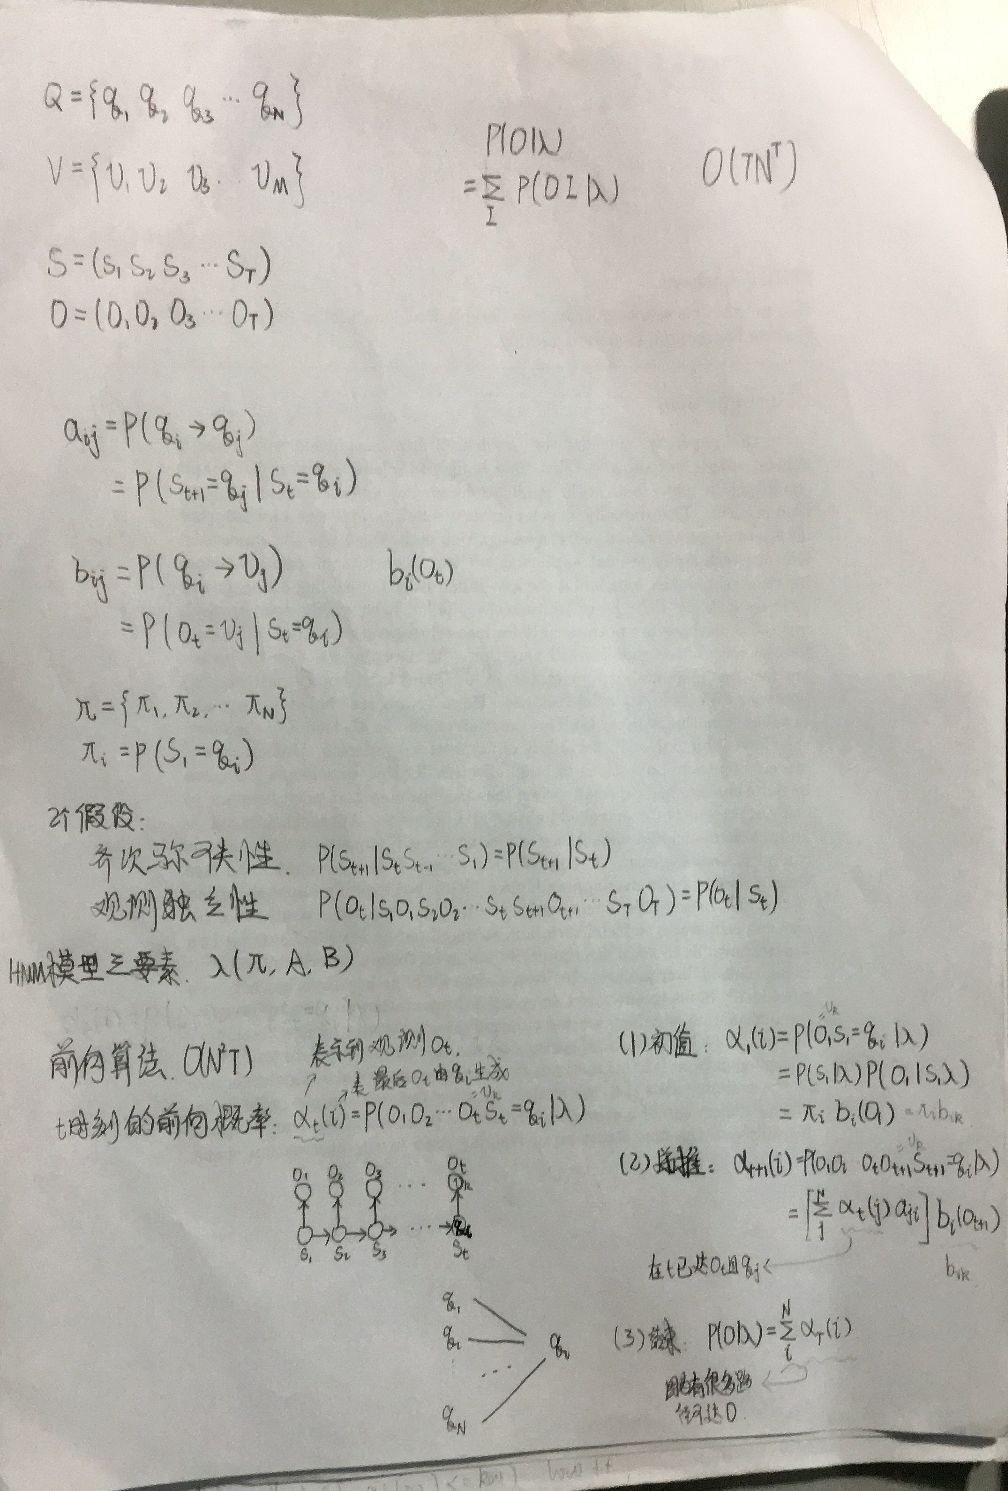 Q={q₁ q₂ q₃ ⋯ q_N}
V={v₁ v₂ v₃ ⋯ v_M}
P(O|λ)
=∑_I P(O I|λ)
O(TN^T)
S=(S₁ S₂ S₃ ⋯ S_T)
O=(O₁ O₂ O₃ ⋯ O_T)
a_ij=P(q_i→q_j)
=P(S_{t+1}=q_j|S_t=q_i)
b_ij=P(q_i→v_j) b_i(O_t)
=P(O_t=v_j|S_t=q_i)
π={π₁,π₂,⋯ π_N}
π_i=P(S₁=q_i)
2个假设:
齐次马尔可夫性. P(S_{t+1}|S_tS_{t-1}⋯S₁)=P(S_{t+1}|S_t)
观测独立性 P(O_t|S₁O₁S₂O₂⋯S_tS_{t+1}O_{t+1}⋯S_TO_T)=P(O_t|S_t)
HMM模型三要素. λ(π, A, B)
前向算法. O(N²T)
表示到观测O_t.
表最后O_t由q_i生成
t时刻的前向概率: α_t(i)=P(O₁O₂⋯O_t S_t=q_i|λ)
=v_k
O₁ O₂ O₃ ⋯ O_t
v_k
⋯ q_i
S₁ S₂ S₃ S_t
q₁
q₂ q_i
⋯
q_N
(1)初值: α₁(i)=P(O₁S₁=q_i|λ)
=v_k
=P(S₁|λ)P(O₁|S₁λ)
=π_i b_i(O₁) =π_i b_ik
(2)递推: α_{t+1}(i)=P(O₁O₂ O_tO_{t+1}S_{t+1}=q_i|λ)
=v_k
=[∑_j^N α_t(j) a_ji] b_i(O_{t+1})
在t已达O_t且q_j
b_ik
(3)结束. P(O|λ)=∑_i^N α_T(i)
因为有很多路
径可达O